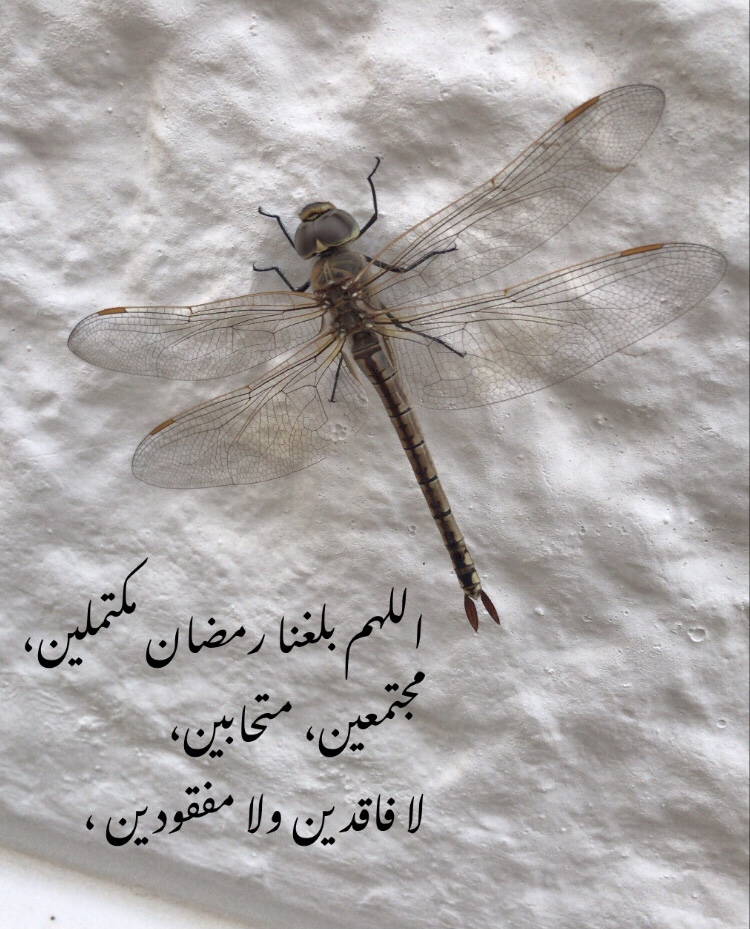 اللهم بلغنا رمضان مكتملين،
مجتمعين، متحابين،
لا فاقدين ولا مفقودين ،